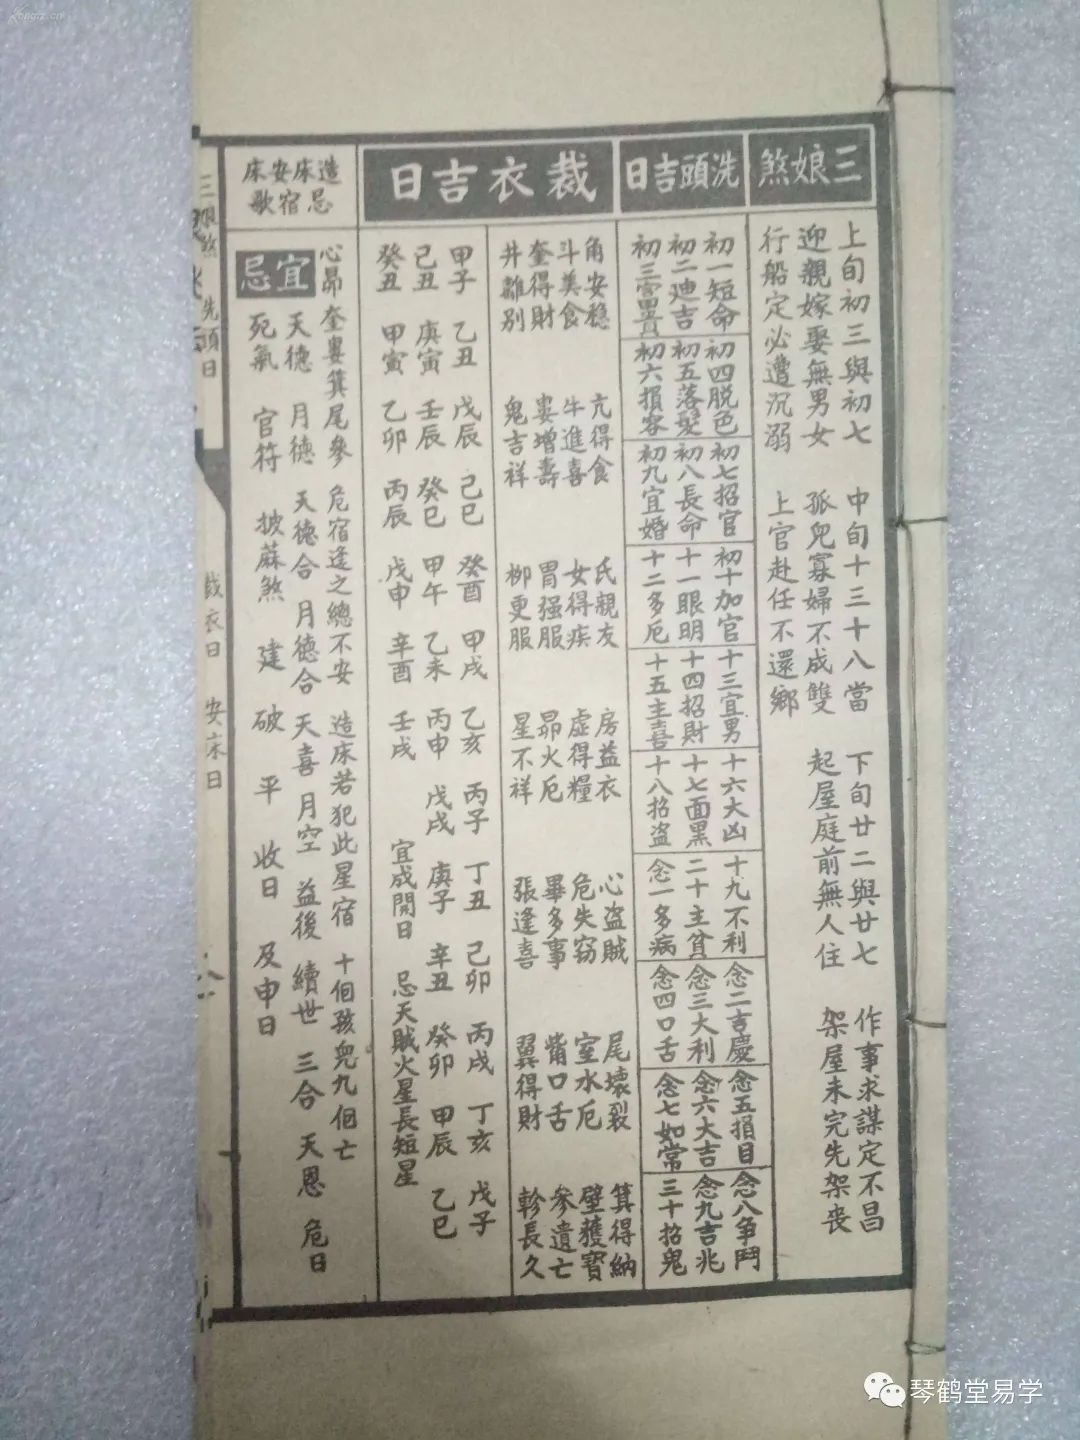 三娘煞
上旬初三與初七 中旬十三十八當 下旬廿二與廿七 作事求謀定不昌
迎親嫁娶無男女 孤兒寡婦不成雙 起屋庭前無人住 架屋未完先架丧
行船定必遭沉溺 上官赴任不還鄉
洗頭吉日
初一短命
初二迪吉
初三富貴
初四脱色
初五落髮
初六損容
初七招官
初八長命
初九宜婚
初十加官
十一眼明
十二多厄
十三宜男
十四招財
十五主喜
十六大凶
十七面黑
十八招盗
十九不利
二十主貧
念一多病
念二吉慶
念三大利
念四口舌
念五損目
念六大吉
念七如常
念八争鬥
念九吉兆
三十招鬼
裁衣吉日
角安稳 亢得食 氏親友 房益衣 心盗賊 尾壊裂 箕得納
斗美食 牛進喜 女得疾 虚得糧 危失窃 室水厄 壁獲寳
奎得財 婁增壽 胃强服 昴火厄 畢多事 觜口舌 参遺亡
井離别 鬼吉祥 柳更服 星不祥 張逢喜 翼得財 軫長久
甲子 乙丑 戊辰 己巳 癸酉 甲戌 乙亥 丙子 丁丑 己卯 丙戌 丁亥 戊子
己丑 庚寅 壬辰 癸巳 甲午 乙未 丙申 戊戌 庚子 辛丑 癸卯 甲辰 乙巳
癸丑 甲寅 乙卯 丙辰 戊申 辛酉 壬戌 宜成開日 忌天賊火星長短星
造床安床
忌宿歌
心昴奎婁箕尾參 危宿逢之總不安 造床若犯此星宿 十個孩兒九個亡
宜 天德 月德 天德合 月德合 天喜 月空 益後 續世 三合 天恩 危日
忌 死氣 官符 披蔴煞 建 破 平 收日 及申日
三娘煞 洗頭日
裁衣日 安床日
琴鹤堂易学